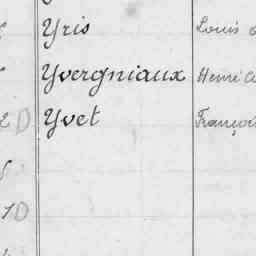 Yris Louis
Yvergniaux Henri
2D Yvet François
1D